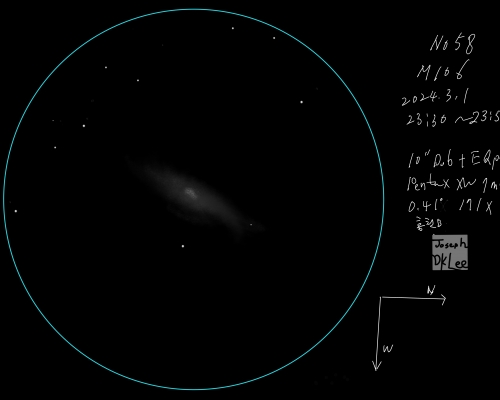 No 58
M106
2024.3.1
23:30 ~23:5
10" Dob + EQP
Pentax XW 7m
0.41° 171x
홍천
Joseph
DK Lee
N
W